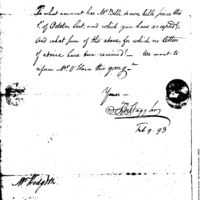 To what amount has Mr. Dell drawn bills since the
of October last, and which you have accepted?
And what sum of the above, for which no letters
of advice have been received? — We want to
inform Mr. O'Hara the
Yours —
Feb 9. 93
Mr Hodgdon